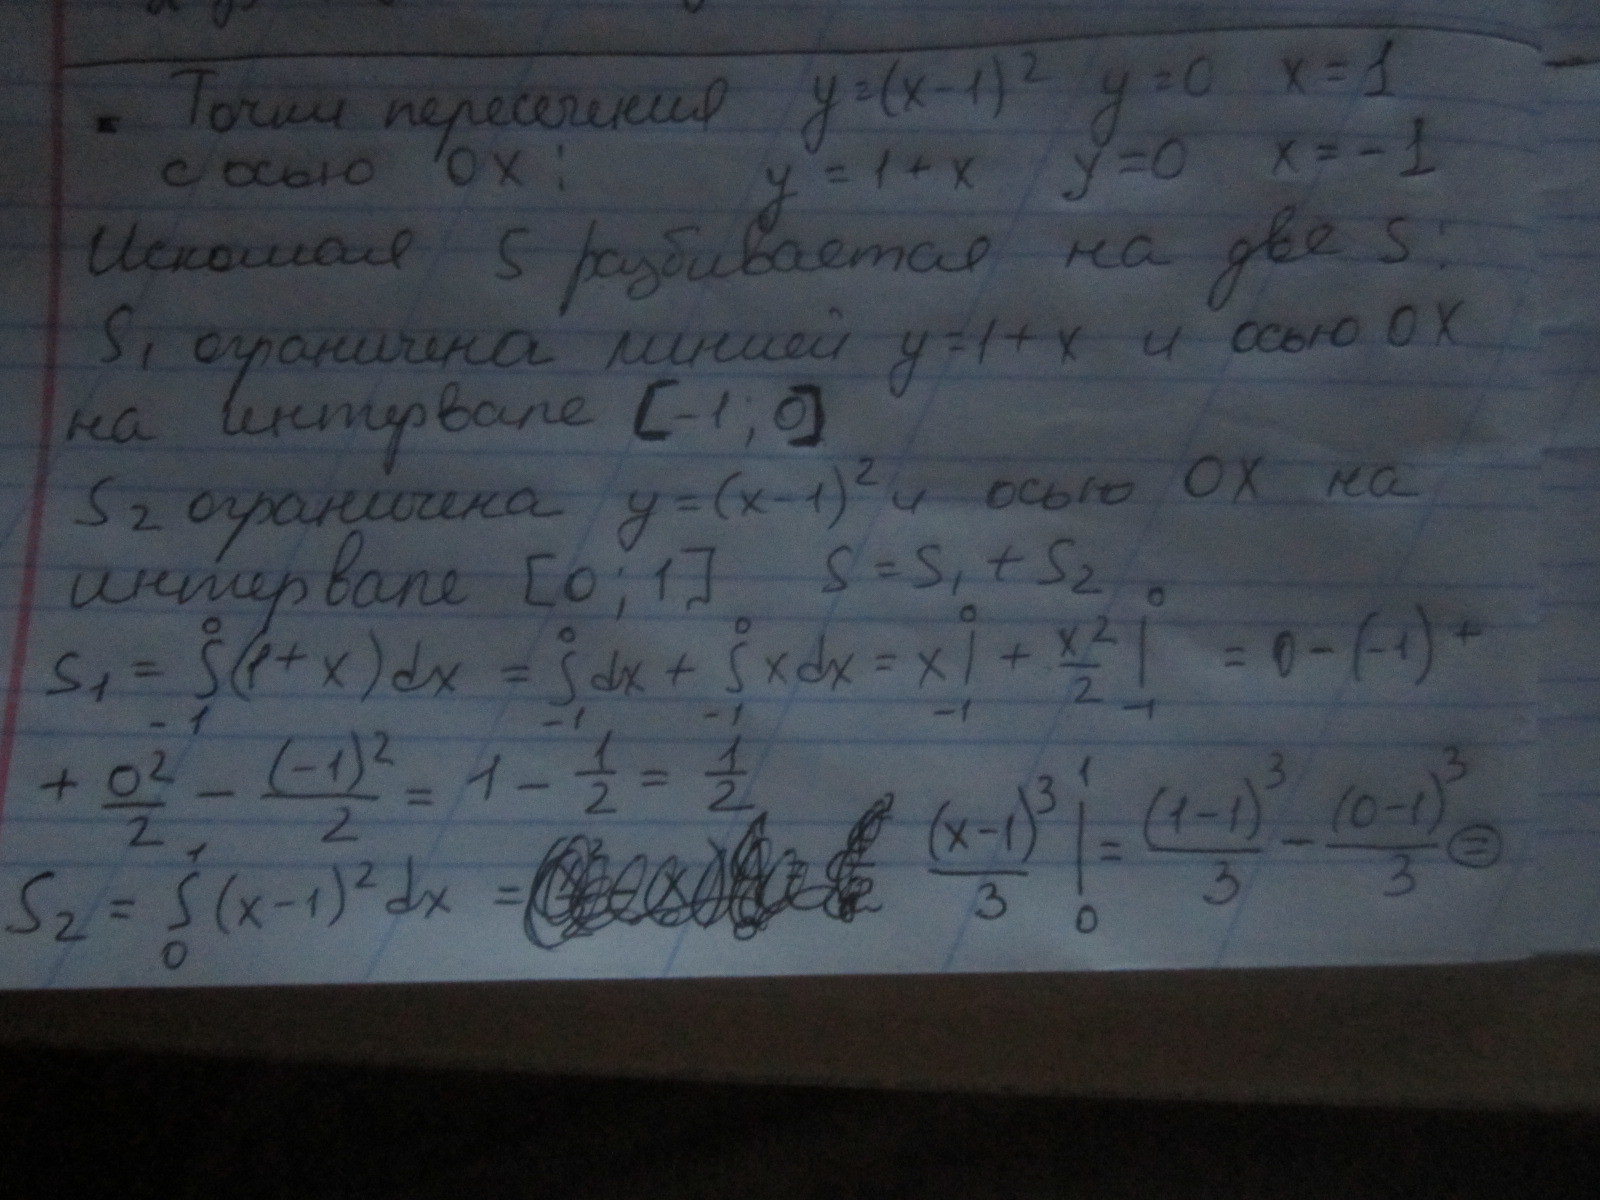 Точки пересечения y=(x-1)² y=0 x=1
с осью OX: y=1+x y=0 x=-1
Искомая S разбивается на две S:
S₁ ограничена линией y=1+x и осью OX
на интервале [-1;0]
S₂ ограничена y=(x-1)² и осью OX на
интервале [0;1] S=S₁+S₂
S₁ = ∫₋₁⁰(1+x)dx = ∫₋₁⁰dx + ∫₋₁⁰xdx = x|₋₁⁰ + x²/2|₋₁⁰ = 0-(-1)+
+ 0²/2 - (-1)²/2 = 1 - 1/2 = 1/2
S₂ = ∫₀¹(x-1)²dx = (x-1)³/3|₀¹ = (1-1)³/3 - (0-1)³/3 =